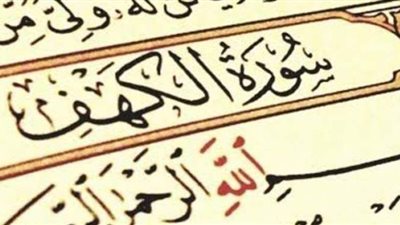 لَّهُ وَلِيٌّ مِّنَ
سُورَةُ الكَهْفِ
اللَّهِ الرَّحْمَٰنِ